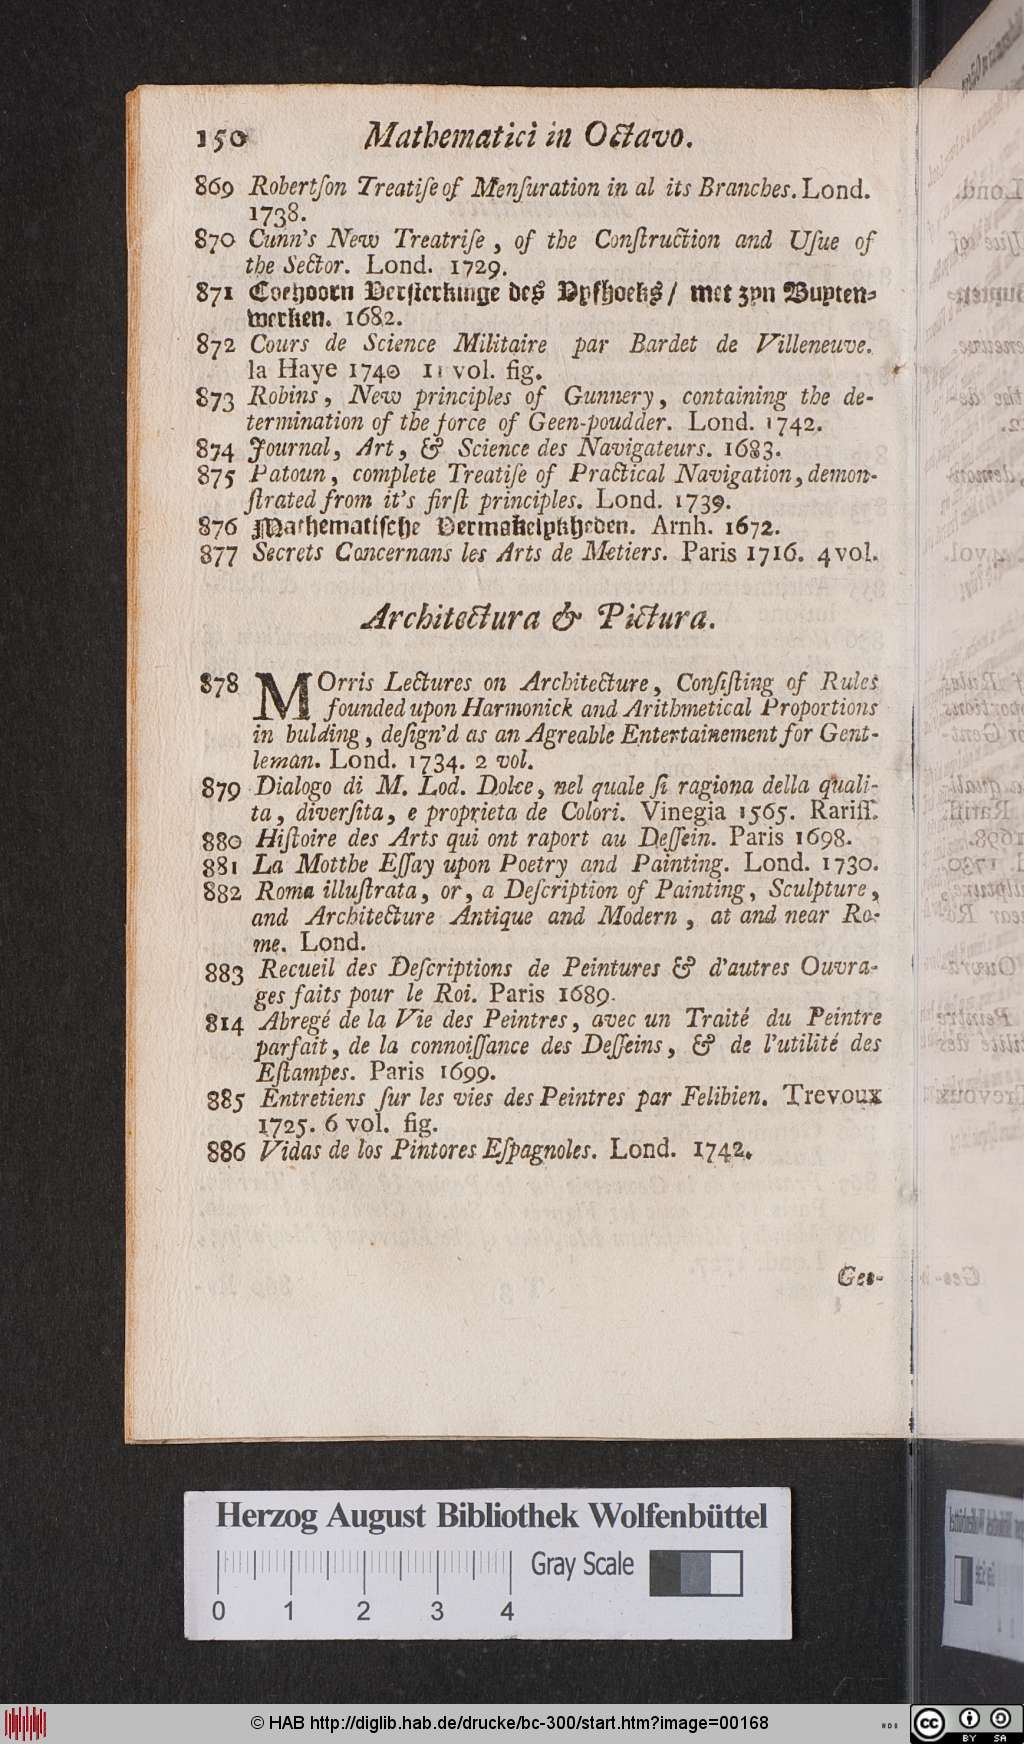 150 Mathematici in Octavo.
869 Robertſon Treatiſe of Menſuration in al its Branches. Lond.
1738.
870 Cunn's New Treatriſe, of the Conſtruction and Uſue of
the Sector. Lond. 1729.
871 Coehoorn Versterkinge des Vyfhoeks / met zyn Buyten-
werken. 1682.
872 Cours de Science Militaire par Bardet de Villeneuve.
la Haye 1740 11 vol. fig.
873 Robins, New principles of Gunnery, containing the de-
termination of the force of Geen-poudder. Lond. 1742.
874 Journal, Art, & Science des Navigateurs. 1683.
875 Patoun, complete Treatiſe of Practical Navigation, demon-
ſtrated from it's firſt principles. Lond. 1739.
876 Mathematiſche Vermakelykheden. Arnh. 1672.
877 Secrets Concernans les Arts de Metiers. Paris 1716. 4 vol.
Architectura & Pictura.
878 MOrris Lectures on Architecture, Conſiſting of Rules
founded upon Harmonick and Arithmetical Proportions
in bulding, deſign'd as an Agreable Entertainement for Gent-
leman. Lond. 1734. 2 vol.
879 Dialogo di M. Lod. Dolce, nel quale ſi ragiona della quali-
ta, diverſita, e proprieta de Colori. Vinegia 1565. Rariſſ.
880 Hiſtoire des Arts qui ont raport au Deſſein. Paris 1698.
881 La Motthe Eſſay upon Poetry and Painting. Lond. 1730.
882 Roma illuſtrata, or, a Deſcription of Painting, Sculpture,
and Architecture Antique and Modern, at and near Ro-
me. Lond.
883 Recueil des Deſcriptions de Peintures & d'autres Ouvra-
ges faits pour le Roi. Paris 1689.
814 Abregé de la Vie des Peintres, avec un Traité du Peintre
parfait, de la connoiſſance des Deſſeins, & de l'utilité des
Eſtampes. Paris 1699.
885 Entretiens ſur les vies des Peintres par Felibien. Trevoux
1725. 6 vol. fig.
886 Vidas de los Pintores Eſpagnoles. Lond. 1742.
Geo-
Herzog August Bibliothek Wolfenbüttel
Gray Scale
0 1 2 3 4
© HAB http://diglib.hab.de/drucke/bc-300/start.htm?image=00168
cc BY SA